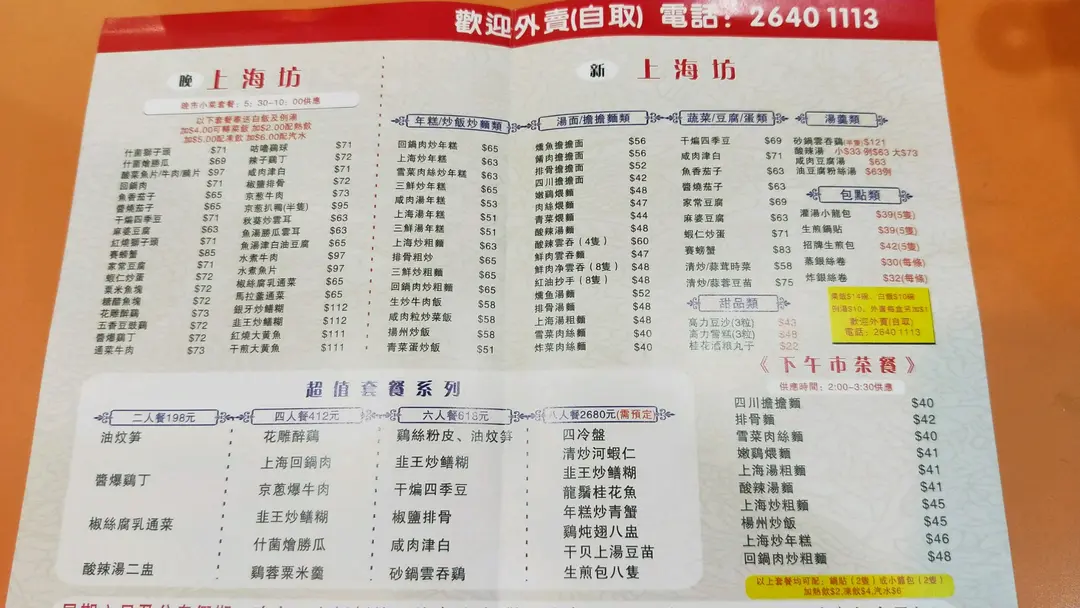 歡迎外賣(自取) 電話: 2640 1113
晚 上海坊
晚市小菜套餐: 5:30-10:00供應
以下套餐專送白飯及例湯
加$4.00可轉菜飯 加$2.00配熱飲
加$5.00配凍飲 加$6.00配汽水
什菌獅子頭 $71
什菌燴勝瓜 $69
酸菜魚片/牛肉/腸片 $97
回鍋肉 $71
魚香茄子 $65
醬燒茄子 $65
干煸四季豆 $71
麻婆豆腐 $63
紅燒獅子頭 $71
賽螃蟹 $85
家常豆腐 $71
蝦仁炒蛋 $72
粟米魚塊 $72
糖醋魚塊 $72
花雕醉鷄 $73
五香豆豉鷄 $72
醬爆鷄丁 $72
通菜牛肉 $73
咕嚕鷄球 $71
辣子鷄丁 $72
咸肉津白 $71
椒鹽排骨 $72
京葱牛肉 $73
京葱扒鴨(半隻) $95
秋葵炒雲耳 $63
魚湯勝瓜雲耳 $63
魚湯津白油豆腐 $65
水煮牛肉 $97
水煮魚片 $97
椒絲腐乳通菜 $65
馬拉盞通菜 $65
銀牙炒鱔糊 $112
韭王炒鱔糊 $112
紅燒大黃魚 $111
干煎大黃魚 $111
新 上海坊
年糕/炒飯炒麵類
回鍋肉炒年糕 $65
上海炒年糕 $63
雪菜肉絲炒年糕 $63
三鮮炒年糕 $65
咸肉湯年糕 $53
上海湯年糕 $51
三鮮湯年糕 $51
上海炒粗麵 $63
排骨粗炒 $65
三鮮炒粗麵 $65
回鍋肉炒粗麵 $65
生炒牛肉飯 $58
咸肉粒炒菜飯 $58
揚州炒飯 $58
青菜蛋炒飯 $51
湯面/擔擔麵類
燻魚擔擔面 $56
餚肉擔擔面 $56
排骨擔擔面 $52
四川擔擔面 $42
嫩鷄煨麵 $48
肉絲煨麵 $47
青菜煨麵 $44
酸辣湯麵 $48
酸辣雲吞(4隻) $60
鮮肉雲吞麵 $47
鮮肉净雲吞(8隻) $48
紅油抄手(8隻) $48
燻魚湯麵 $52
排骨湯麵 $48
上海湯粗麵 $48
雪菜肉絲麵 $40
炸菜肉絲麵 $40
蔬菜/豆腐/蛋類
干煸四季豆 $69
咸肉津白 $71
魚香茄子 $63
醬燒茄子 $63
家常豆腐 $69
麻婆豆腐 $63
蝦仁炒蛋 $71
賽螃蟹 $83
清炒/蒜茸時菜 $58
清炒/蒜蓉豆苗 $75
甜品類
高力豆沙(3粒) $43
高力香糕(3粒) $48
桂花酒粮丸子 $22
湯羹類
砂鍋雲吞鷄(半隻) $121
酸辣湯 小$33 例$63 大$73
咸肉豆腐湯 $63
油豆腐粉絲湯 $63例
包點類
灌湯小籠包 $39(5隻)
生煎鍋貼 $39(5隻)
招牌生煎包 $42(5隻)
蒸銀絲卷 $30(每條)
炸銀絲卷 $32(每條)
菜飯$14碗, 白飯$10碗
例湯$10, 外賣餐盒另加$1
歡迎外賣(自取)
電話: 2640 1113
《下午市茶餐》
供應時間: 2:00-3:30供應
四川擔擔麵 $40
排骨麵 $42
雪菜肉絲麵 $40
嫩鷄煨麵 $41
上海湯粗麵 $41
酸辣湯麵 $41
上海炒粗麵 $45
楊州炒飯 $45
上海炒年糕 $46
回鍋肉炒粗麵 $48
以上套餐均可配: 鍋貼(2隻)或小籠包(2隻)
加熱飲$2,凍飲$4,汽水$6
超值套餐系列
二人餐198元
油炆笋
醬爆鷄丁
椒絲腐乳通菜
酸辣湯二盅
四人餐412元
花雕醉鷄
上海回鍋肉
京葱爆牛肉
韭王炒鱔糊
什菌燴勝瓜
鷄蓉粟米羹
六人餐618元
鷄絲粉皮、油炆笋
韭王炒鱔糊
干煸四季豆
椒鹽排骨
咸肉津白
砂鍋雲吞鷄
八人餐2680元(需預定)
四冷盤
清炒河蝦仁
韭王炒鱔糊
龍鬚桂花魚
年糕炒青蟹
鷄炖翅八盅
干贝上湯豆苗
生煎包八隻